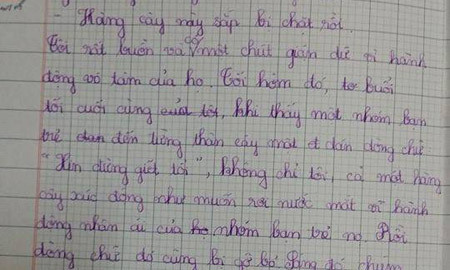 - Hàng cây này sắp bị chặt rồi.
Tôi rất buồn và có một chút giận dữ vì hành
động vô tâm của họ. Tối hôm đó, buổi
tối cuối cùng của tôi, khi thấy một nhóm bạn
trẻ đến từng thân cây một dán dòng chữ
"Xin đừng giết tôi", không chỉ tôi, cả một hàng
cây xúc động như muốn rơi nước mắt vì hành
động nhân ái của nhóm bạn trẻ nọ. Rồi
dòng chữ đó cũng bị gỡ bỏ